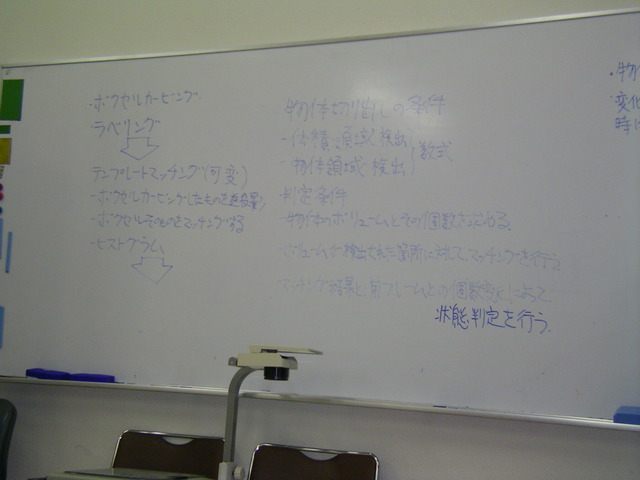 ・ボクセルカービング
ラベリング
テンプレートマッチング(可変)
-ボクセルカービングしたものを逆投影
-ボクセルそのものをマッチングする
-ヒストグラム
物体切り出しの条件
-体積、領域検出
-物体領域検出
数式
判定条件
-物体のボリュームとその個数を求める。
ボリュームで検出された箇所に対してマッチングを行う
マッチング結果と、前フレームとの個数変化によって
状態判定を行う.
・物
変化
時